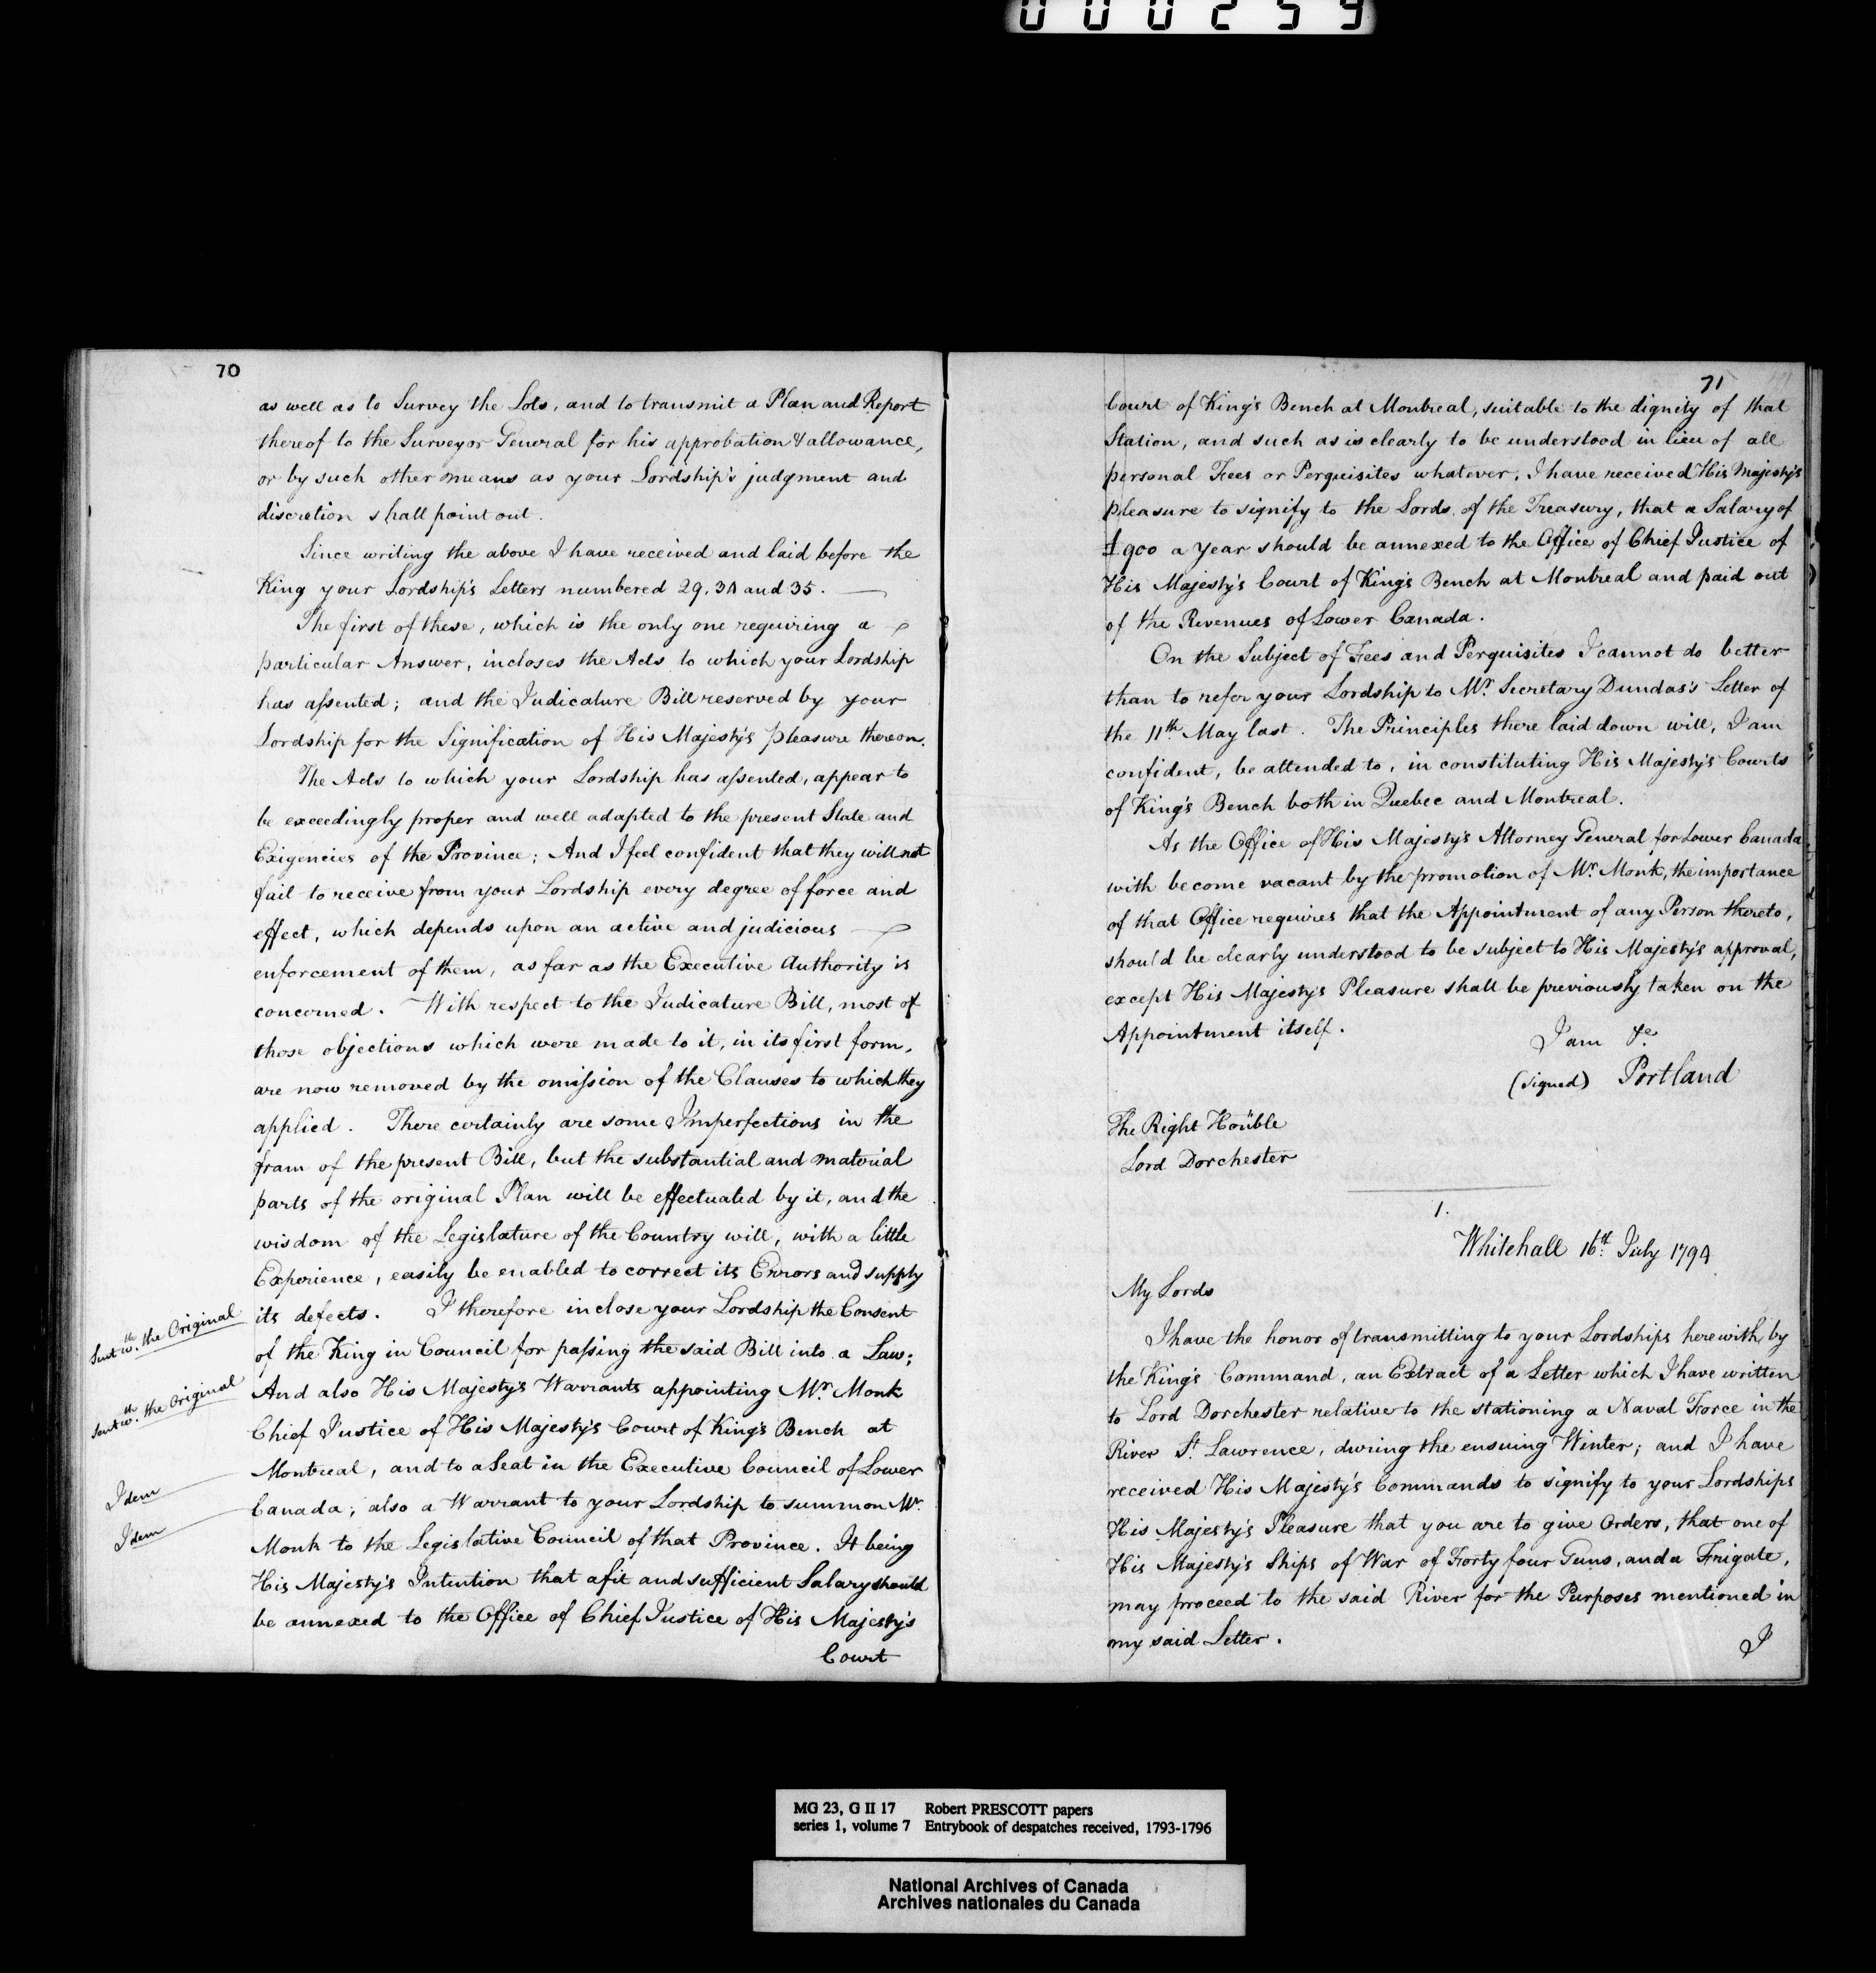 000259
70
as well as to Survey the Lots, and to transmit a Plan and Report
thereof to the Surveyor General for his approbation & allowance,
or by such other means as your Lordship's judgment and
discretion shall point out.
Since writing the above I have received and laid before the
King your Lordship's Letters numbered 29. 34 and 35.
The first of these, which is the only one requiring a
particular Answer, incloses the Acts to which your Lordship
has assented; and the Judicature Bill reserved by your
Lordship for the Signification of His Majesty's pleasure thereon.
The Acts to which your Lordship has assented, appear to
be exceedingly proper and well adapted to the present State and
Exigencies of the Province; And I feel confident that they will not
fail to receive from your Lordship every degree of force and
effect, which depends upon an active and judicious
enforcement of them, as far as the Executive Authority is
concerned. With respect to the Judicature Bill, most of
those objections which were made to it, in its first form,
are now removed by the omission of the Clauses to which they
applied. There certainly are some Imperfections in the
fram of the present Bill, but the substantial and material
parts of the original Plan will be effectuated by it, and the
wisdom of the Legislature of the Country will, with a little
Experience, easily be enabled to correct its Errors and supply
its defects. I therefore inclose your Lordship the Consent
Sent wth. the Original
of the King in Council for passing the said Bill into a Law;
And also His Majesty's Warrants appointing Mr. Monk
Sent wth. the Original
Chief Justice of His Majesty's Court of King's Bench at
Montreal, and to a Seat in the Executive Council of Lower
Idem
Canada; also a Warrant to your Lordship to summon Mr.
Idem
Monk to the Legislative Council of that Province. It being
His Majesty's Intention that a fit and sufficient Salary should
be annexed to the Office of Chief Justice of His Majesty's
Court
71
Court of King's Bench at Montreal, suitable to the dignity of that
Station, and such as is clearly to be understood in lieu of all
personal Fees or Perquisites whatever, I have received His Majesty's
pleasure to signify to the Lords of the Treasury, that a Salary of
£900 a Year should be annexed to the Office of Chief Justice of
His Majesty's Court of King's Bench at Montreal and paid out
of the Revenues of Lower Canada.
On the Subject of Fees and Perquisites I cannot do better
than to refer your Lordship to Mr. Secretary Dundas's Letter of
the 11th May last. The Principles there laid down will, I am
confident, be attended to, in constituting His Majesty's Courts
of King's Bench both in Quebec and Montreal.
As the Office of His Majesty's Attorney General for Lower Canada
with become vacant by the promotion of Mr. Monk, the importance
of that Office requires that the Appointment of any Person thereto,
should be clearly understood to be subject to His Majesty's approval,
except His Majesty's Pleasure shall be previously taken on the
Appointment itself.
I am &c.
(signed) Portland
The Right Honble
Lord Dorchester
1.
Whitehall 16th. July 1794
My Lords
I have the honor of transmitting to your Lordships herewith, by
the King's Command, an Extract of a Letter which I have written
to Lord Dorchester relative to the stationing a Naval Force in the
River St. Lawrence, during the ensuing Winter; and I have
received His Majesty's Commands to signify to your Lordships
His Majesty's Pleasure that you are to give Orders, that one of
His Majesty's Ships of War of Forty four Guns, and a Frigate,
may proceed to the said River for the Purposes mentioned in
my said Letter.
I
MG 23, G II 17 Robert PRESCOTT papers
series 1, volume 7 Entrybook of despatches received, 1793-1796
National Archives of Canada
Archives nationales du Canada